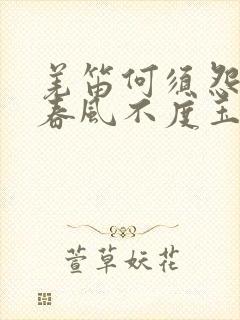 羌笛何须怨
春风不度玉
萱草妖花